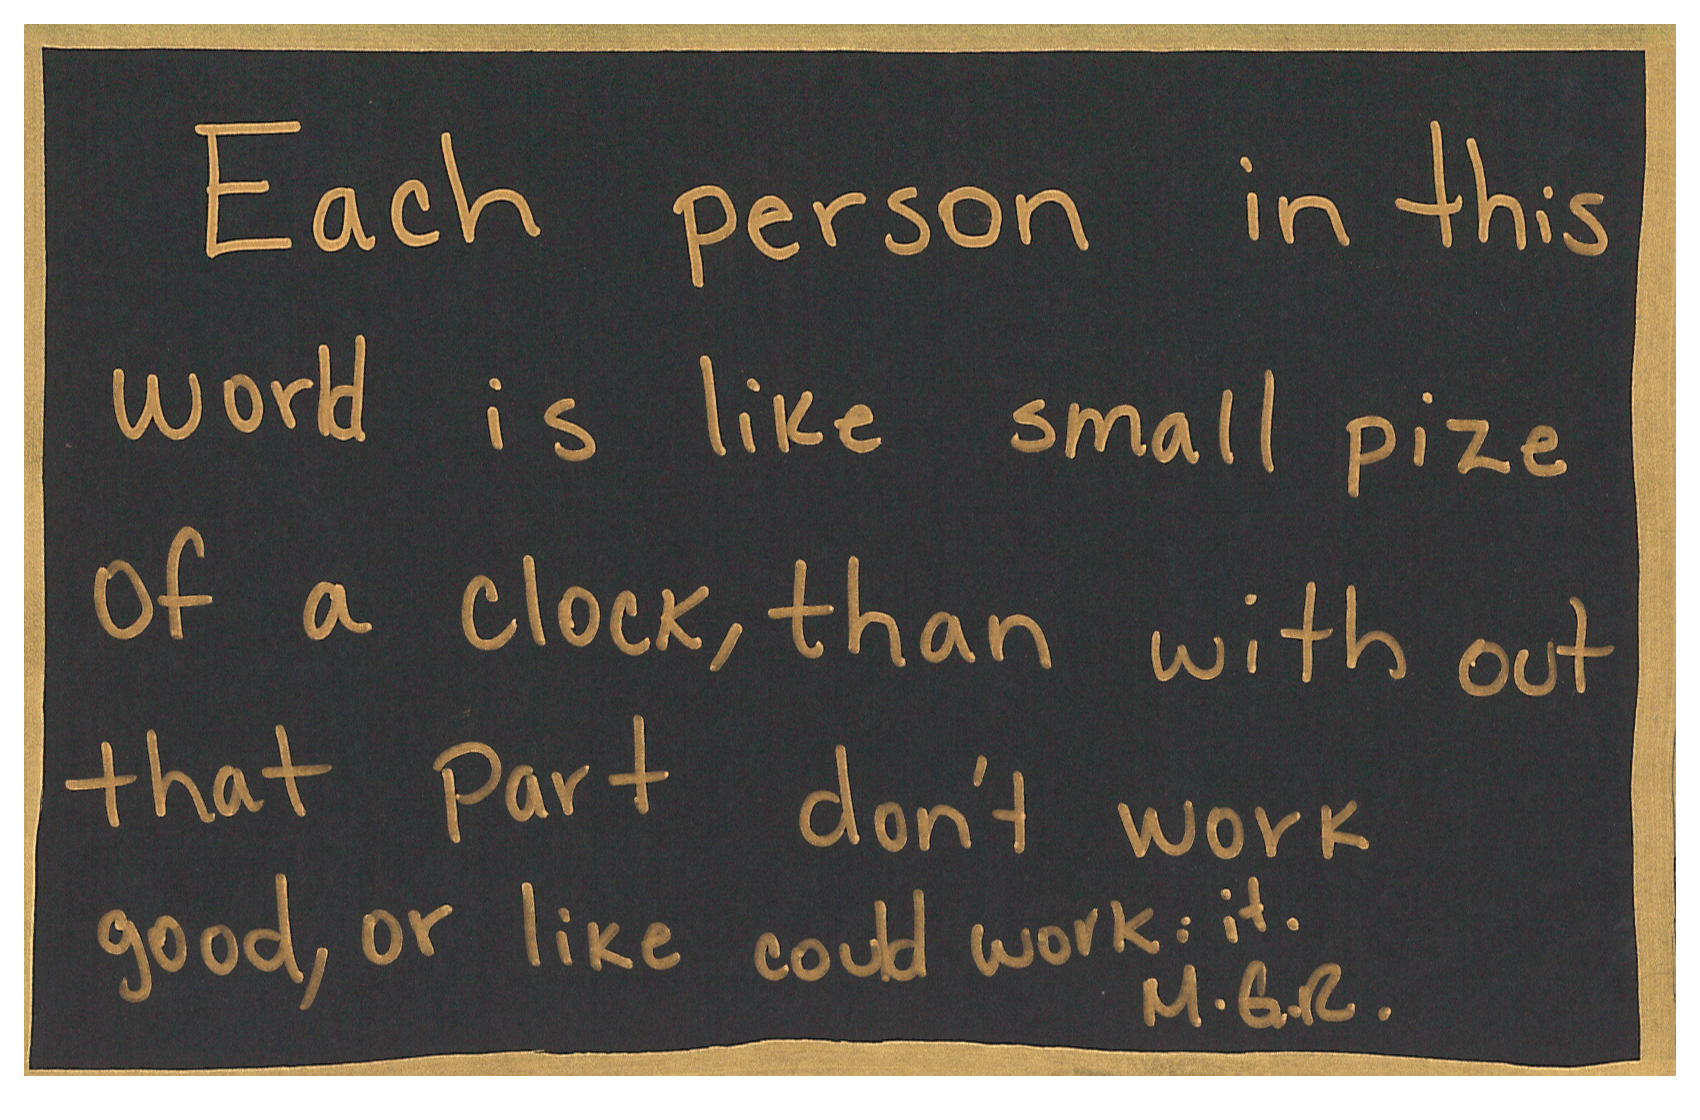 Each person in this
world is like small pize
of a clock, than with out
that part don't work
good, or like could work: it.
M.G.R.